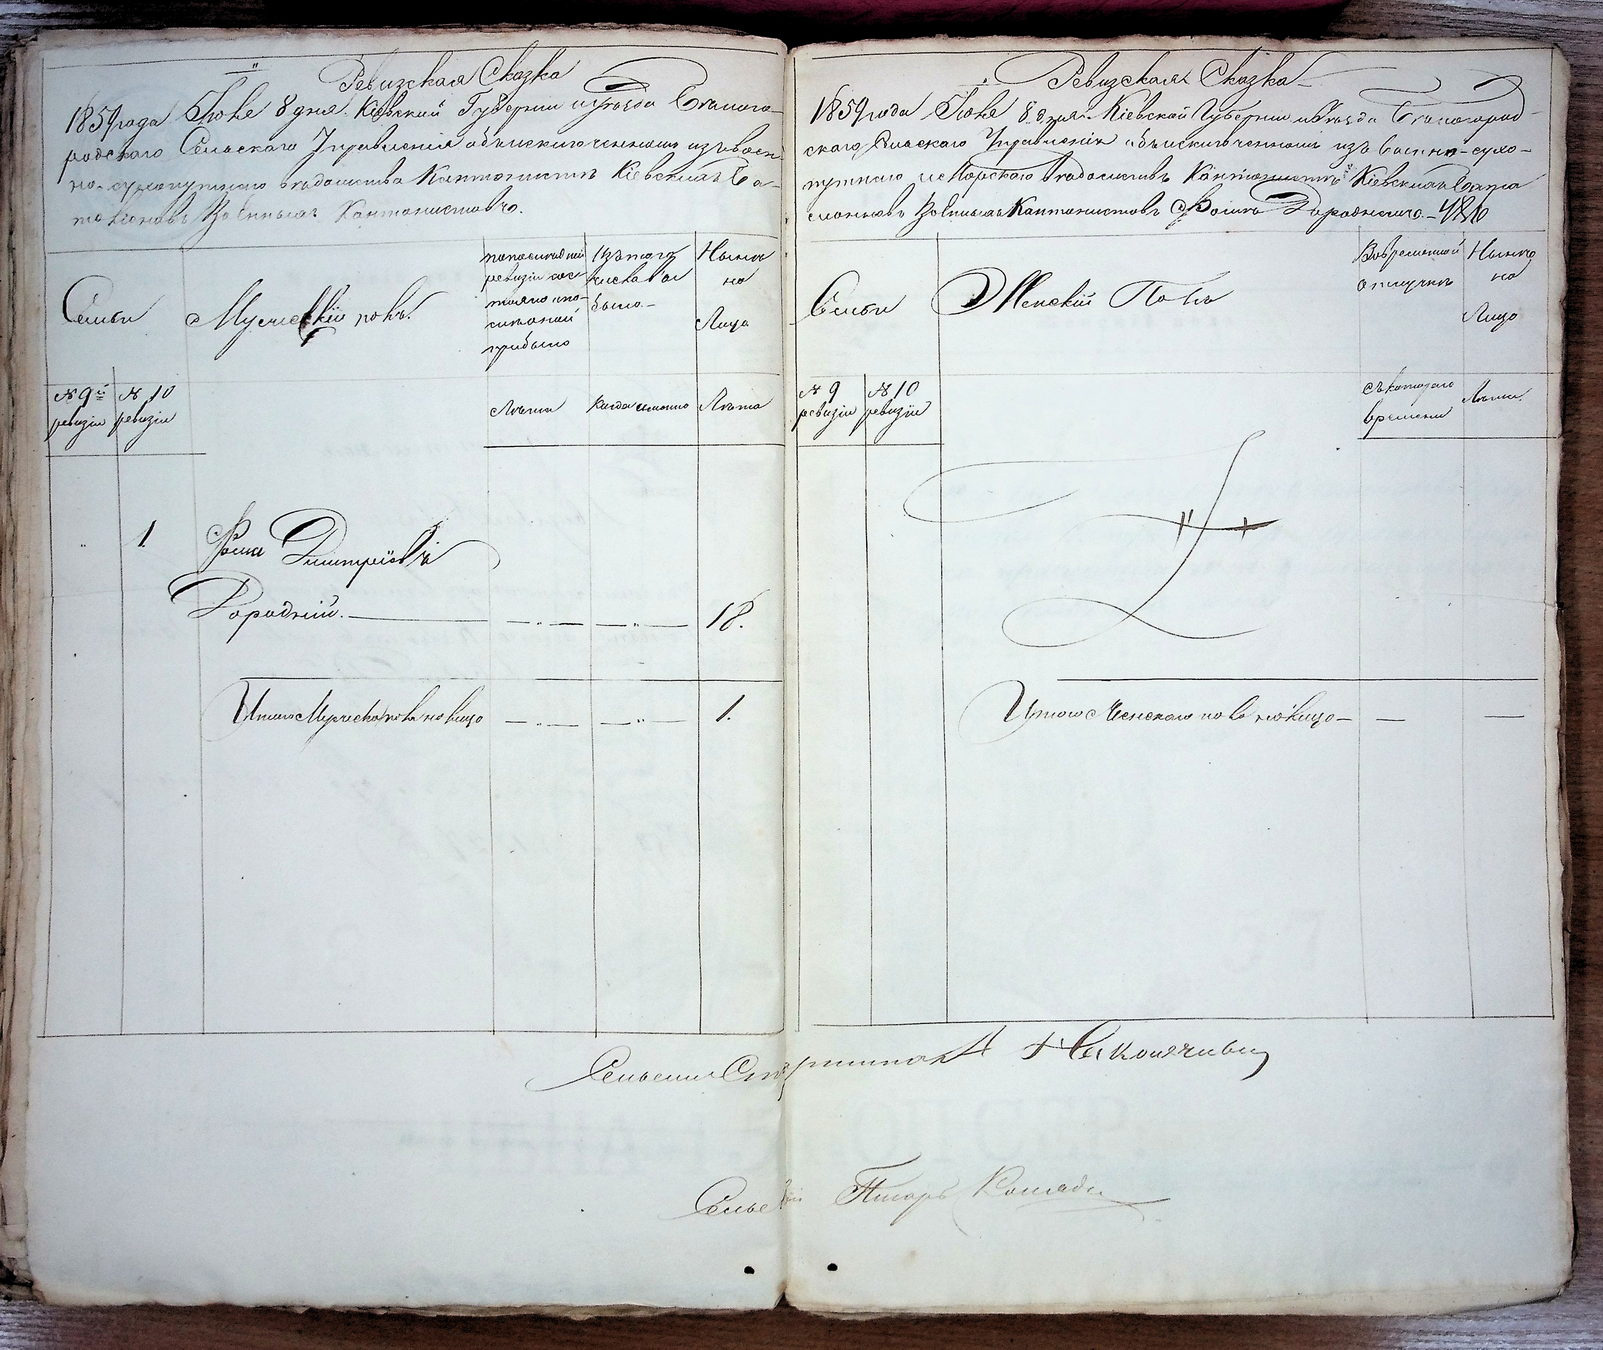 Ревизская Сказка
1859 года Июня 8 дня. Кіевской Губерніи и уѣзда Бѣлого-
родского Сельского Управленія объ исключенномъ изъ воен-
но-сухопутнаго вѣдомства Кантонистѣ Кіевскихъ Ба-
таліоновъ Военныхъ Кантонистовъ.
Семьи
Мужескій полъ.
По последней
ревизіи сос-
тояло и по-
слѣ оной
прибыло
Изъ того
числа вы
было
Нынѣ
на
Лицо
№ 9й
ревизіи
№ 10
ревизіи
Лѣта
Когда именно
Лѣта
1.
Фома Дмитріевъ
Городній.
18.
Итого Мужеска пола на лицо
1.
Ревизская Сказка
1859 года Июня 8 дня. Кіевской Губерніи и уѣзда Бѣлогород-
скаго Сельскаго Управленія объ исключенномъ изъ военно-сухо-
путнаго и Морскаго вѣдомствъ Кантонистѣ Кіевскихъ Бата
ліоновъ Военныхъ Кантонистовъ Фомѣ Городнемъ.
Семьи
Женскій Полъ
Во временной
отлучкѣ
Нынѣ
на
Лицо
№ 9
ревизіи
№ 10
ревизіи
съ котораго
времени
Лѣта.
Итого Женскаго пола на лицо
Сельскій Старшина
Сельскій Писарь